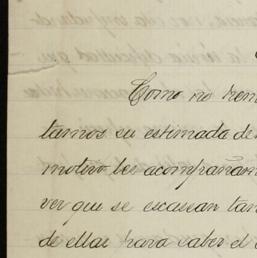 Como no
tamos su estimada de
motivo les acompañam
ver que se escasean tan
de ellas para saber el